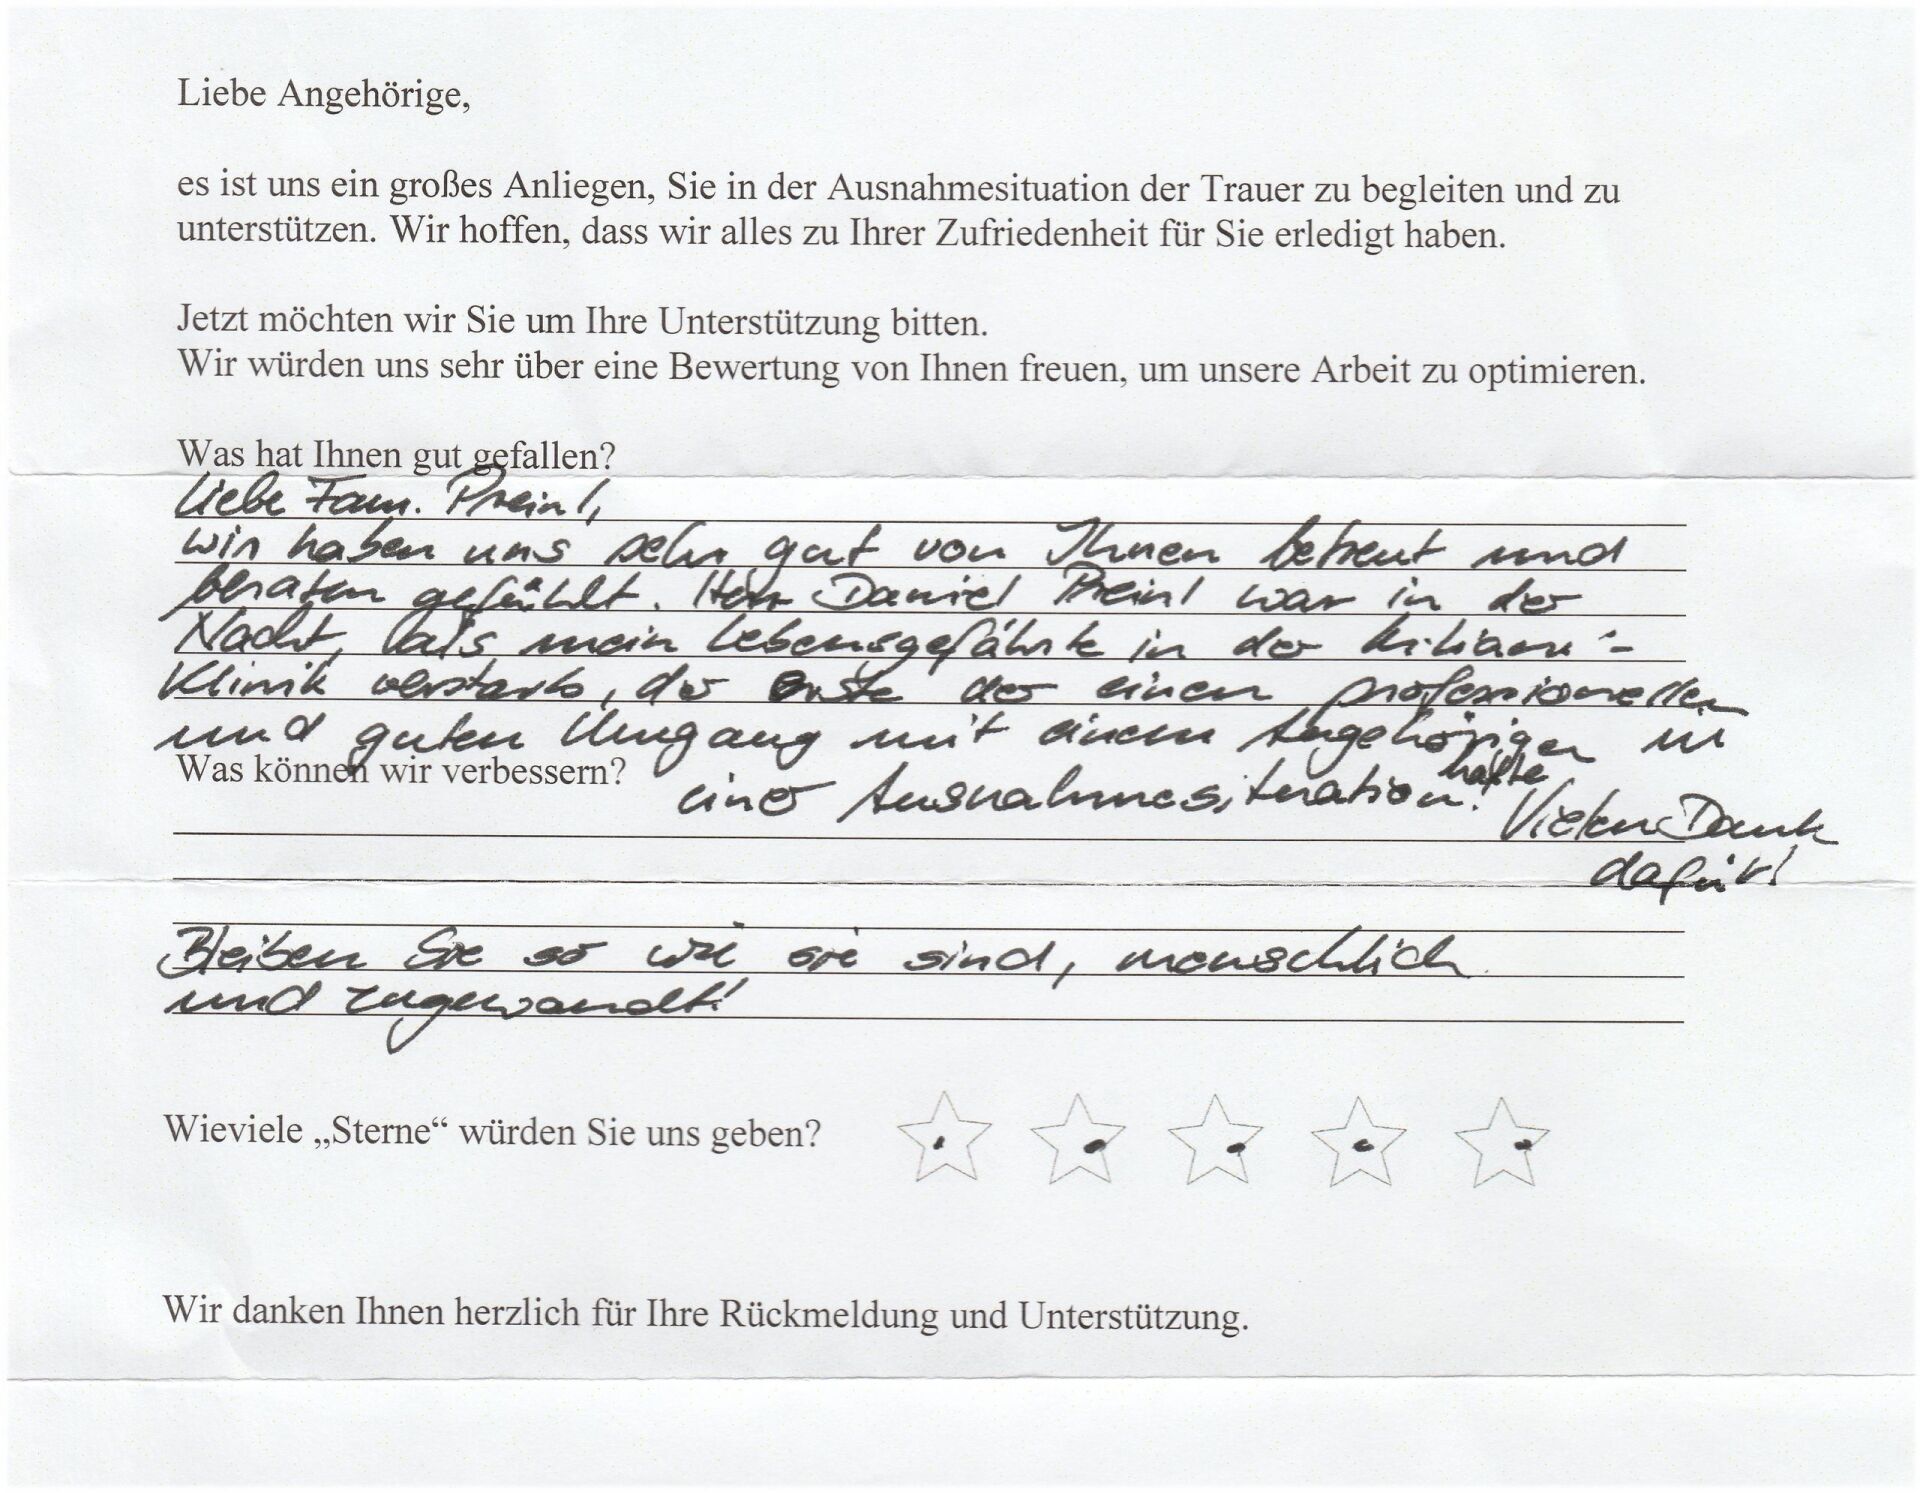 Liebe Angehörige,
es ist uns ein großes Anliegen, Sie in der Ausnahmesituation der Trauer zu begleiten und zu
unterstützen. Wir hoffen, dass wir alles zu Ihrer Zufriedenheit für Sie erledigt haben.
Jetzt möchten wir Sie um Ihre Unterstützung bitten.
Wir würden uns sehr über eine Bewertung von Ihnen freuen, um unsere Arbeit zu optimieren.
Was hat Ihnen gut gefallen?
Liebe Fam. Preinl,
wir haben uns sehr gut von Ihnen betreut und
beraten gefühlt. Herr Daniel Preinl war in der
Nacht, als mein Lebensgefährte in der Kilian's-
Klinik verstarb, der erste der einen professionellen
und guten Umgang mit einem Angehörigen in
einer Ausnahmesituation hatte!
Vielen Dank
dafür!
Was können wir verbessern?
Bleiben Sie so wie sie sind, menschlich
und zugewandt!
Wieviele „Sterne“ würden Sie uns geben?
Wir danken Ihnen herzlich für Ihre Rückmeldung und Unterstützung.